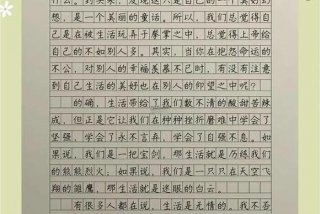 什么。到头来，发现这只是自己的一个美好幻
想，是一个美丽的童话。所以，我们总觉得自
己是在被生活玩弄于掌之中，总觉得上帝给
自己的不如别人多。其实，当你在抱怨命运的
不公，对别人的幸福羡慕不已时，有没有注意
到自己生活的美好也在别人的仰望之中呢？
的确，生活带给了我们数不清的酸甜苦辣
咸，但正是它让我们在种种挫折磨难中学会了
坚强，学会了永不言弃，学会了自强不息。如
果说，我们是一把宝剑，那生活就是历练我们
的熊熊烈火；如果说，我们是一只只在天空飞
翔的雏鹰，那生活就是迷眼的白云。
有很多人都在说，生活是无情的。我不否